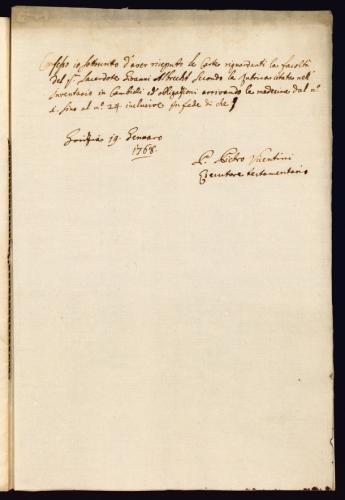 Confesso io sottoscritto d'aver ricevuto le Carte riguardanti la facoltà
del q. Sacerdote Giovanni Albrecht secondo la rubrica citata nell'
Inventario in Cambelli ed Obligazioni arrivando le medeme dal n.º
1. sino al n.º 24. inclusive. In fede di che
Gorizia 19. Gennaro
1768.
P. Pietro Vicentini
Esecutore testamentario